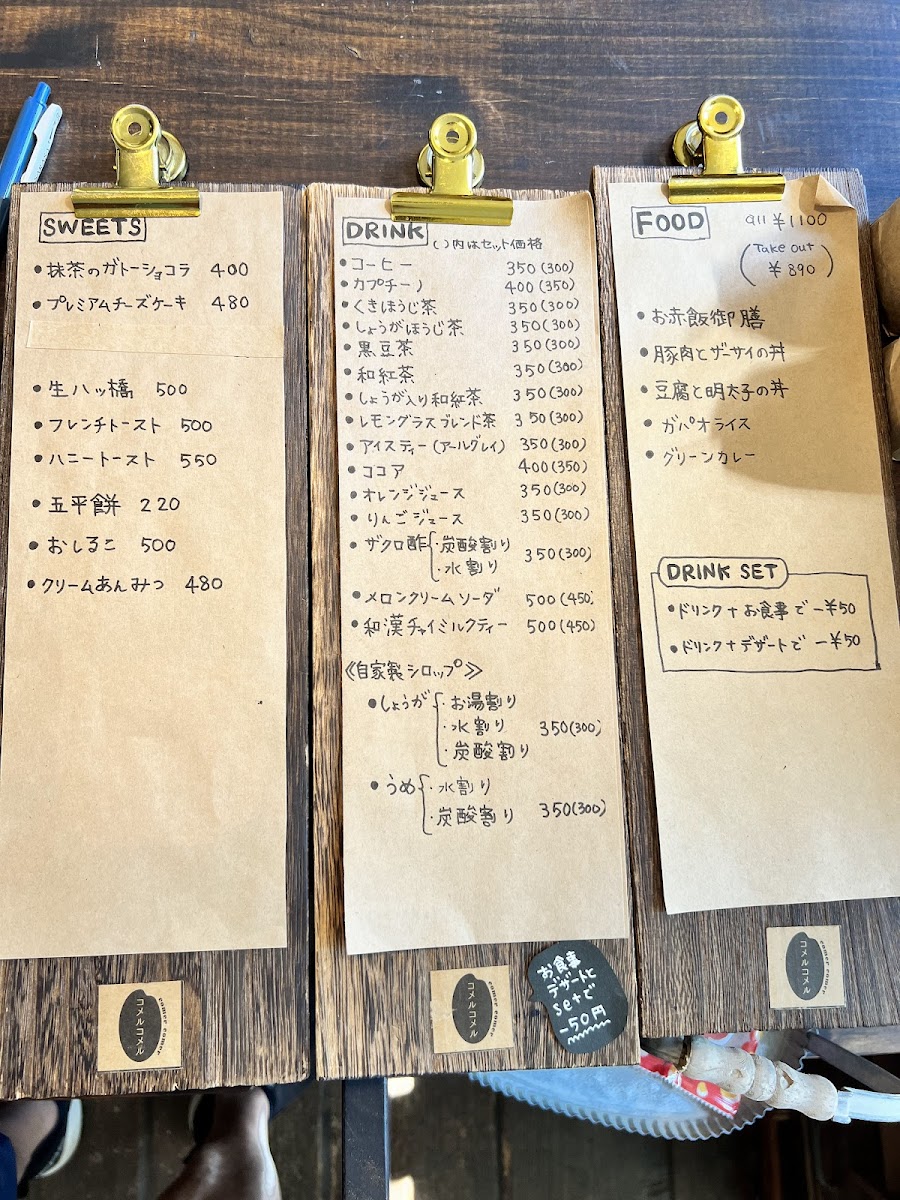 SWEETS
・抹茶のガトーショコラ 400
・プレミアムチーズケーキ 480
・生ハッ橋 500
・フレンチトースト 500
・ハニートースト 550
・五平餅 220
・おしるこ 500
・クリームあんみつ 480
コメルコメル
comer comer
DRINK ( )内はセット価格
・コーヒー 350(300)
・カプチーノ 400(350)
・くきほうじ茶 350(300)
・しょうがほうじ茶 350(300)
・黒豆茶 350(300)
・和紅茶 350(300)
・しょうが入り和紅茶 350(300)
・レモングラスブレンド茶 350(300)
・アイスティー(アールグレイ) 350(300)
・ココア 400(350)
・オレンジジュース 350(300)
・りんごジュース 350(300)
・ザクロ酢{・炭酸割り 350(300)
・水割り
・メロンクリームソーダ 500(450)
・和漢チャイミルクティー 500(450)
《自家製シロップ》
・しょうが{・お湯割り
・水割り 350(300)
・炭酸割り
・うめ{・水割り
・炭酸割り 350(300)
コメルコメル
comer comer
お食事
デザートと
setで
-50円
FOOD all ¥1100
(Take out
¥890)
・お赤飯御膳
・豚肉とザーサイの丼
・豆腐と明太子の丼
・ガパオライス
・グリーンカレー
DRINK SET
・ドリンク+お食事で-¥50
・ドリンク+デザートで-¥50
コメルコメル
comer comer